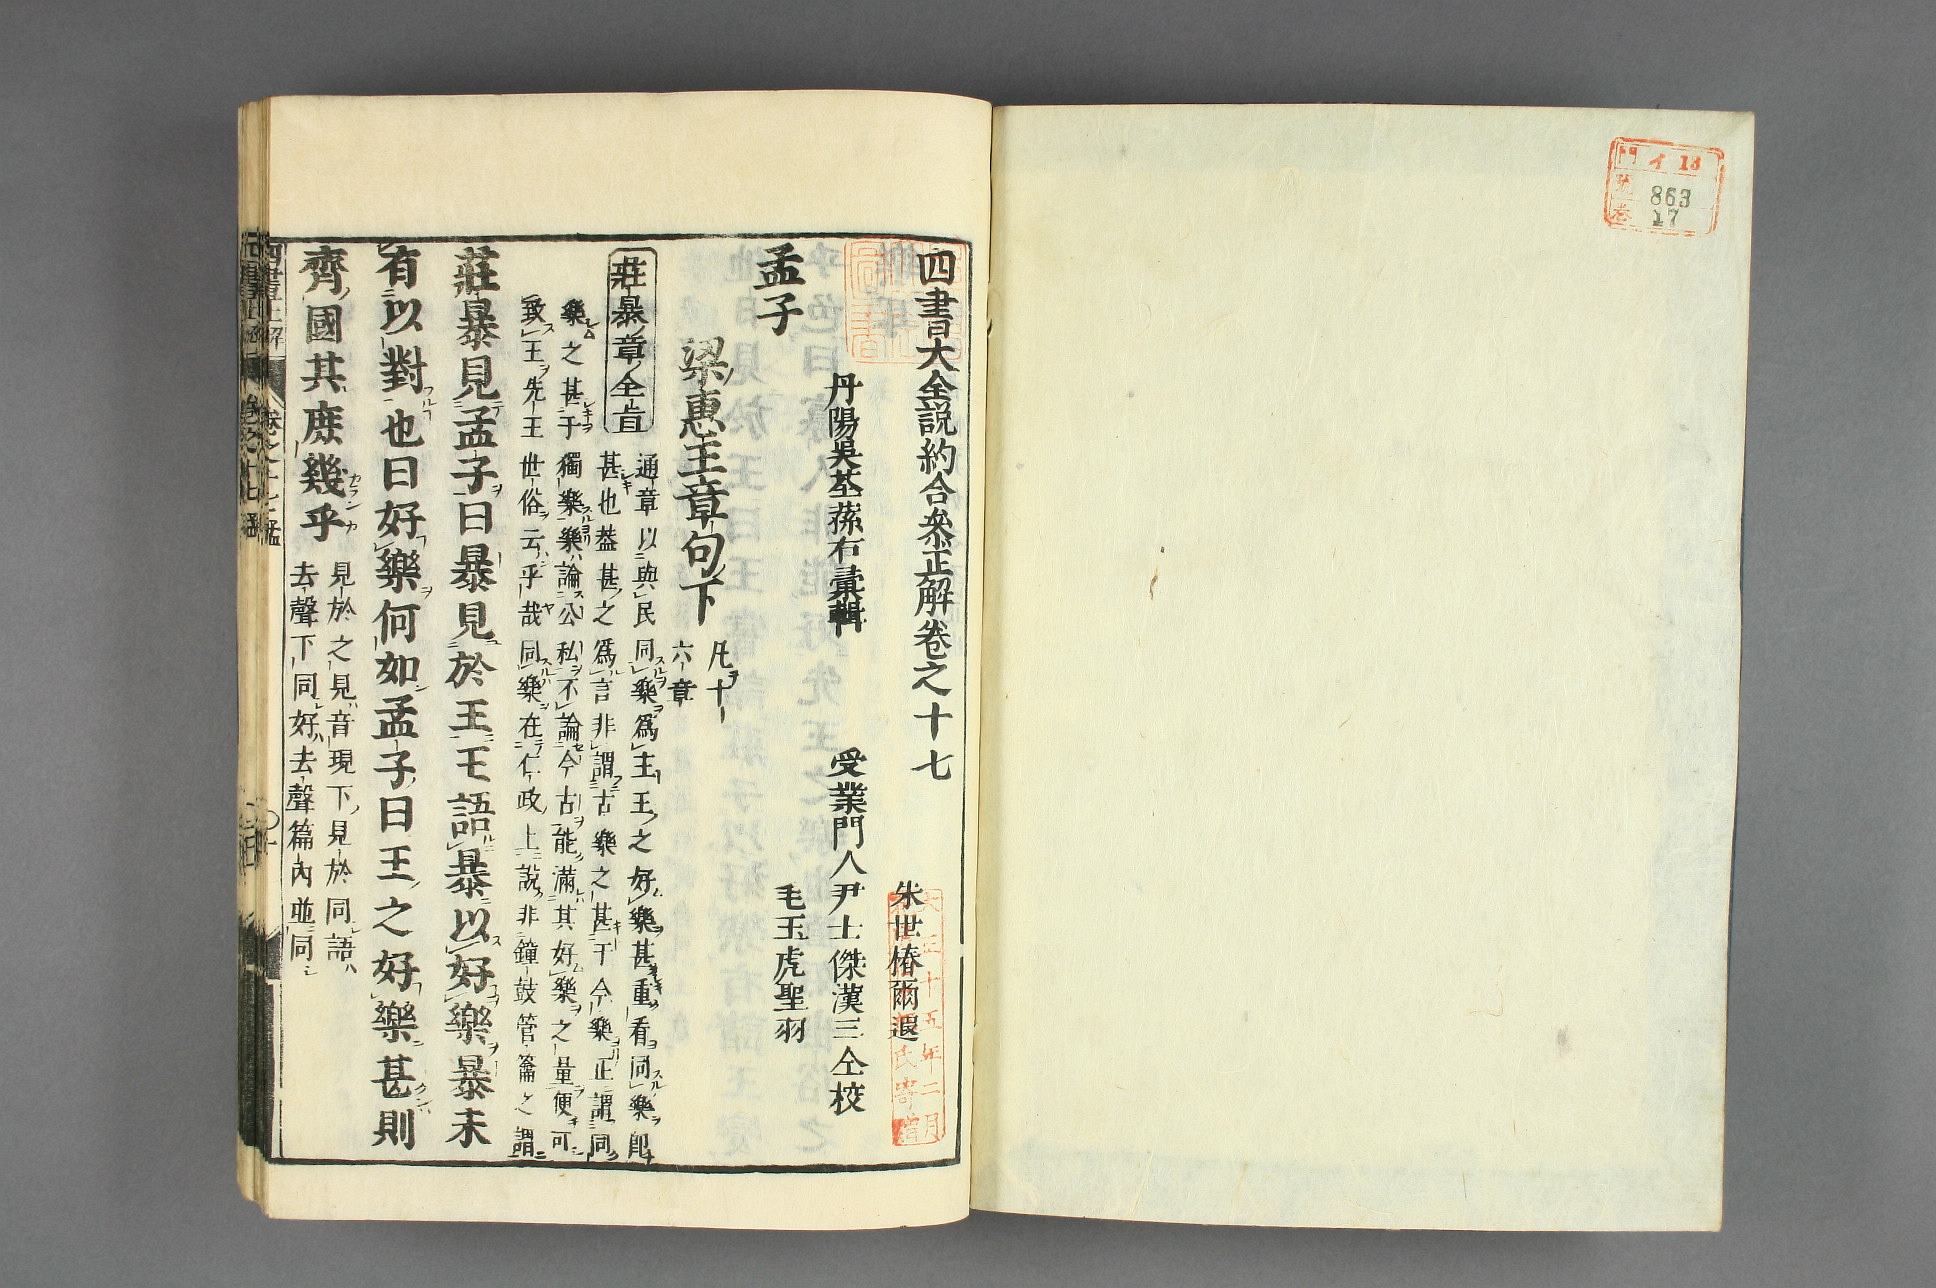 門 イ 13
號 863
卷 17
四書大全説約合參正解卷之十七
丹陽吳荃蓀右彙輯
受業門人
朱世椿爾遐
尹士傑漢三仝校
毛玉虎聖羽
大正十五年二月
氏寄贈
孟子
梁惠王章句下
凡十
六章
莊暴章全旨
通章以與民同樂爲主王之好樂甚重看同樂卽
甚也蓋甚之爲言非謂古樂之甚于今樂正謂同
樂之甚于獨樂樂論公私不論今古能滿其好樂之量便可
致王先王世俗云乎哉同樂在仁政上說非鐘鼓管籥之謂
莊暴見孟子曰暴見於王王語暴以好樂暴未
有以對也曰好樂何如孟子曰王之好樂甚則
齊國其庶幾乎
見於之見音現下見於同語
去聲下同好去聲篇內並同
四書正解
卷之十七孟